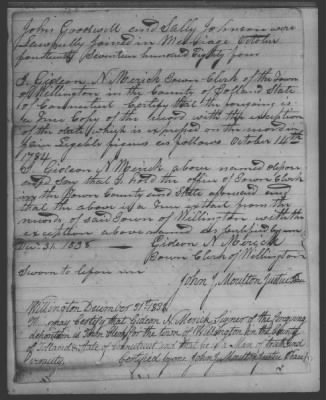 John Goodwill and Sally Johnson were
Lawfully joined in Marriage October
fourteenth Seventeen hundred Eighty four
I Gideon N. Merick Town Clerk of the Town
of Willington in the County of Tolland State
of Connecticut Certify that the foregoing is
a True Copy of the Record with the exception
of the date which is expressed on the record in
fair Legable figures as follows October 14th
1784.
I Gideon N Merick above named depose
and Say that I hold the office of Town Clerk
in the Town County and State aforesaid and
that the above is a True extract from the
records of said Town of Willington with the
exception above named as Certified by me
Dec. 31, 1838
Gideon N. Merick
Town Clerk of Willington
Sworn to before me
John J. Moulton Justice
Willington December 31st 1838
may Certify that Gideon N. Merick Signer of the foregoing
deposition is Town Clerk for the town of Willington in the County
of Tolland State of Connecticut and that he is a Man of truth and
veracity Certified by me John J. Moulton Justice Peace